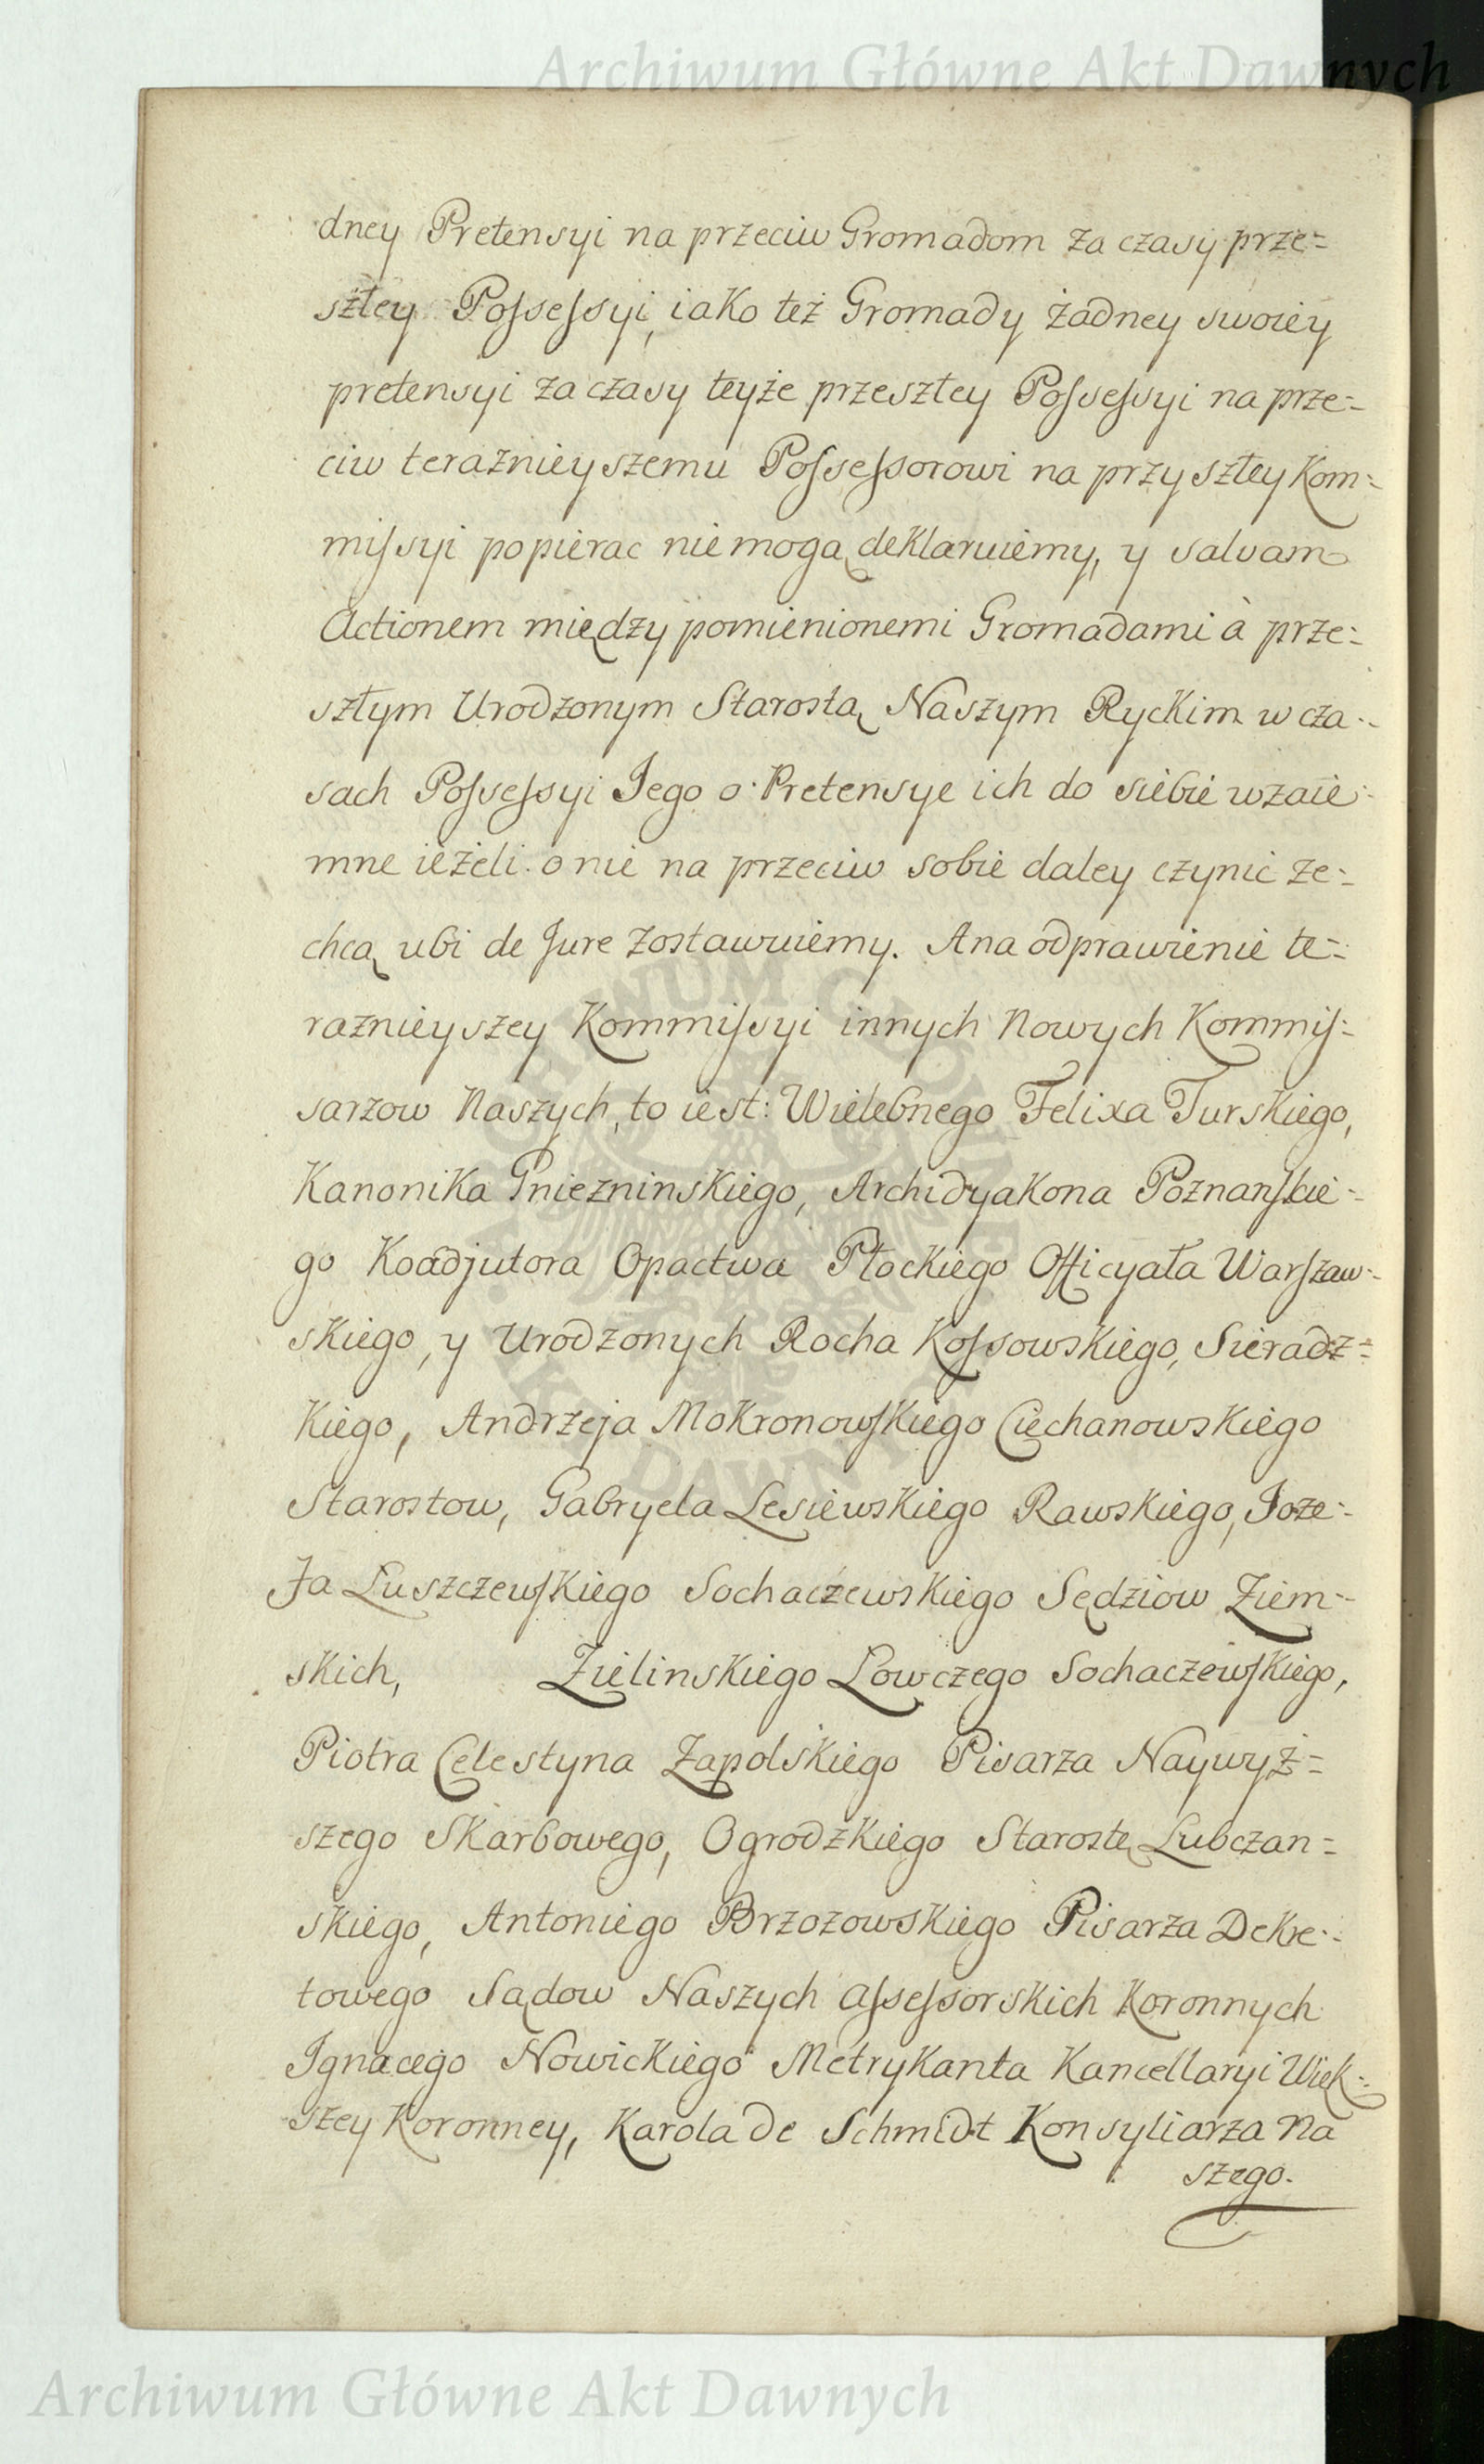 Archiwum Główne Akt Dawnych
dney Pretensyi na przeciw Gromadom za czasy prze=
szłey Poſseſsyi, iako też Gromady żadney swoiey
pretensyi za czasy teyże przeszłey Poſseſsyi na prze=
ciw teraznieyszemu Poſseſsorowi na przyszłey Kom=
miſsyi popierac nie mogą deklaruiemy, y salvam
Actionem między pomienionemi Gromadami à prze=
szłym Urodzonym Starostą Naszym Ryckim w cza=
sach Poſseſsyi Jego o Pretensye ich do siebie wzaie=
mne ieżeli o nie na przeciw sobie daley czynić ze=
chcą ubi de Jure zostawuiemy. A na odprawienie te=
raznieyszey Kommiſsyi innych Nowych Kommiſ=
sarzow Naszych, to iest: Wielebnego Felixa Turskiego,
Kanonika Gniezninskiego, Archidyakona Poznanſkie=
go Koadjutora Opactwa Płockiego Officyała Warſzaw=
skiego, y Urodzonych Rocha Koſsowskiego, Sieradz=
kiego, Andrzeja Mokronowſkiego Ciechanowskiego
Starostow, Gabryela Lesiewskiego Rawskiego, Joze=
fa Luszczewſkiego Sochaczewskiego Sędziow Ziem=
skich, Zielinskiego Lowczego Sochaczewſkiego,
Piotra Celestyna Zapolskiego Pisarza Naywyż=
szego Skarbowego, Ogrodzkiego Starostę Lubczan=
skiego, Antoniego Brzozowskiego Pisarza Dekre=
towego Sądow Naszych Aſseſsorskich Koronnych
Ignacego Nowickiego Metrykanta Kancellaryi Więk=
szey Koronney, Karola de Schmidt Konsyliarza Na
szego.
Archiwum Główne Akt Dawnych